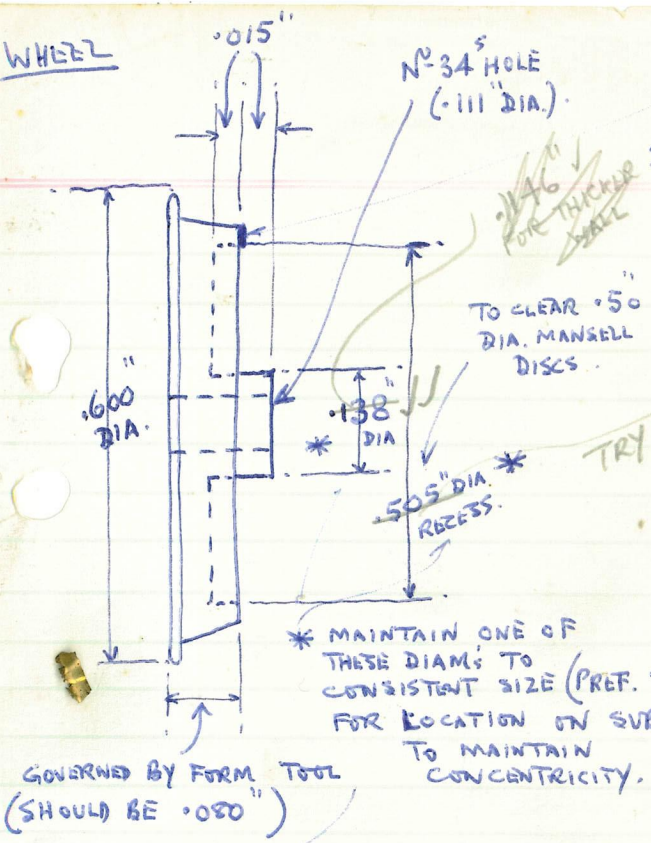 WHEEL
.015"
Nº 34s HOLE
(.111" DIA.).
.1146"
FOR THICKER
WALL
TO CLEAR .50"
DIA. MANSELL
DISCS.
.600"
DIA.
.138"
* DIA
TRY
.505" DIA. *
RECESS.
* MAINTAIN ONE OF
THESE DIAMS TO
CONSISTENT SIZE (PREF.
FOR LOCATION ON SUB
TO MAINTAIN
CONCENTRICITY.
GOVERNED BY FORM TOOL
(SHOULD BE .080")